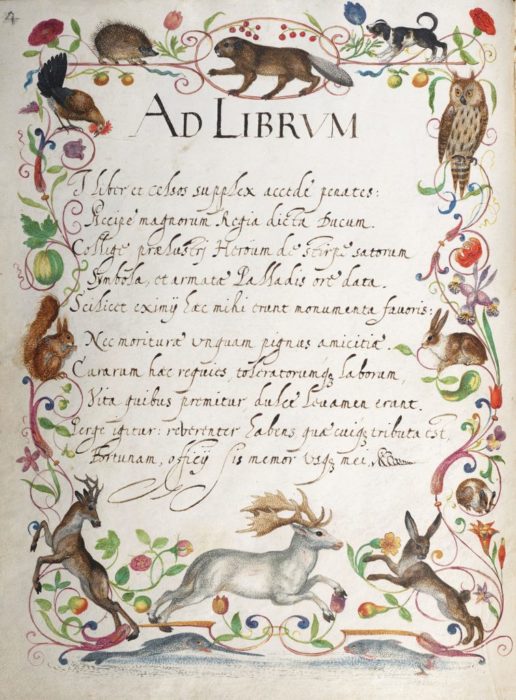 4
AD LIBRVM
I liber et celsos supplex accede penates:
Accipe magnorum Regia dicta Ducum.
Collige prælustri Heroum de stirpe satorum
Symbola, et armatæ Palladis ore data.
Scilicet eximij hæc mihi erunt monumenta favoris:
Nec morituræ vnquam pignus amicitiæ.
Curarum hæc requies, toleratorumq3 laborum,
Vita quibus premitur dulce levamen erunt.
Perge igitur: reverenter habens, quæ cuiq3 tributa est,
Fortunam, officij sis memor vsq3 mei,